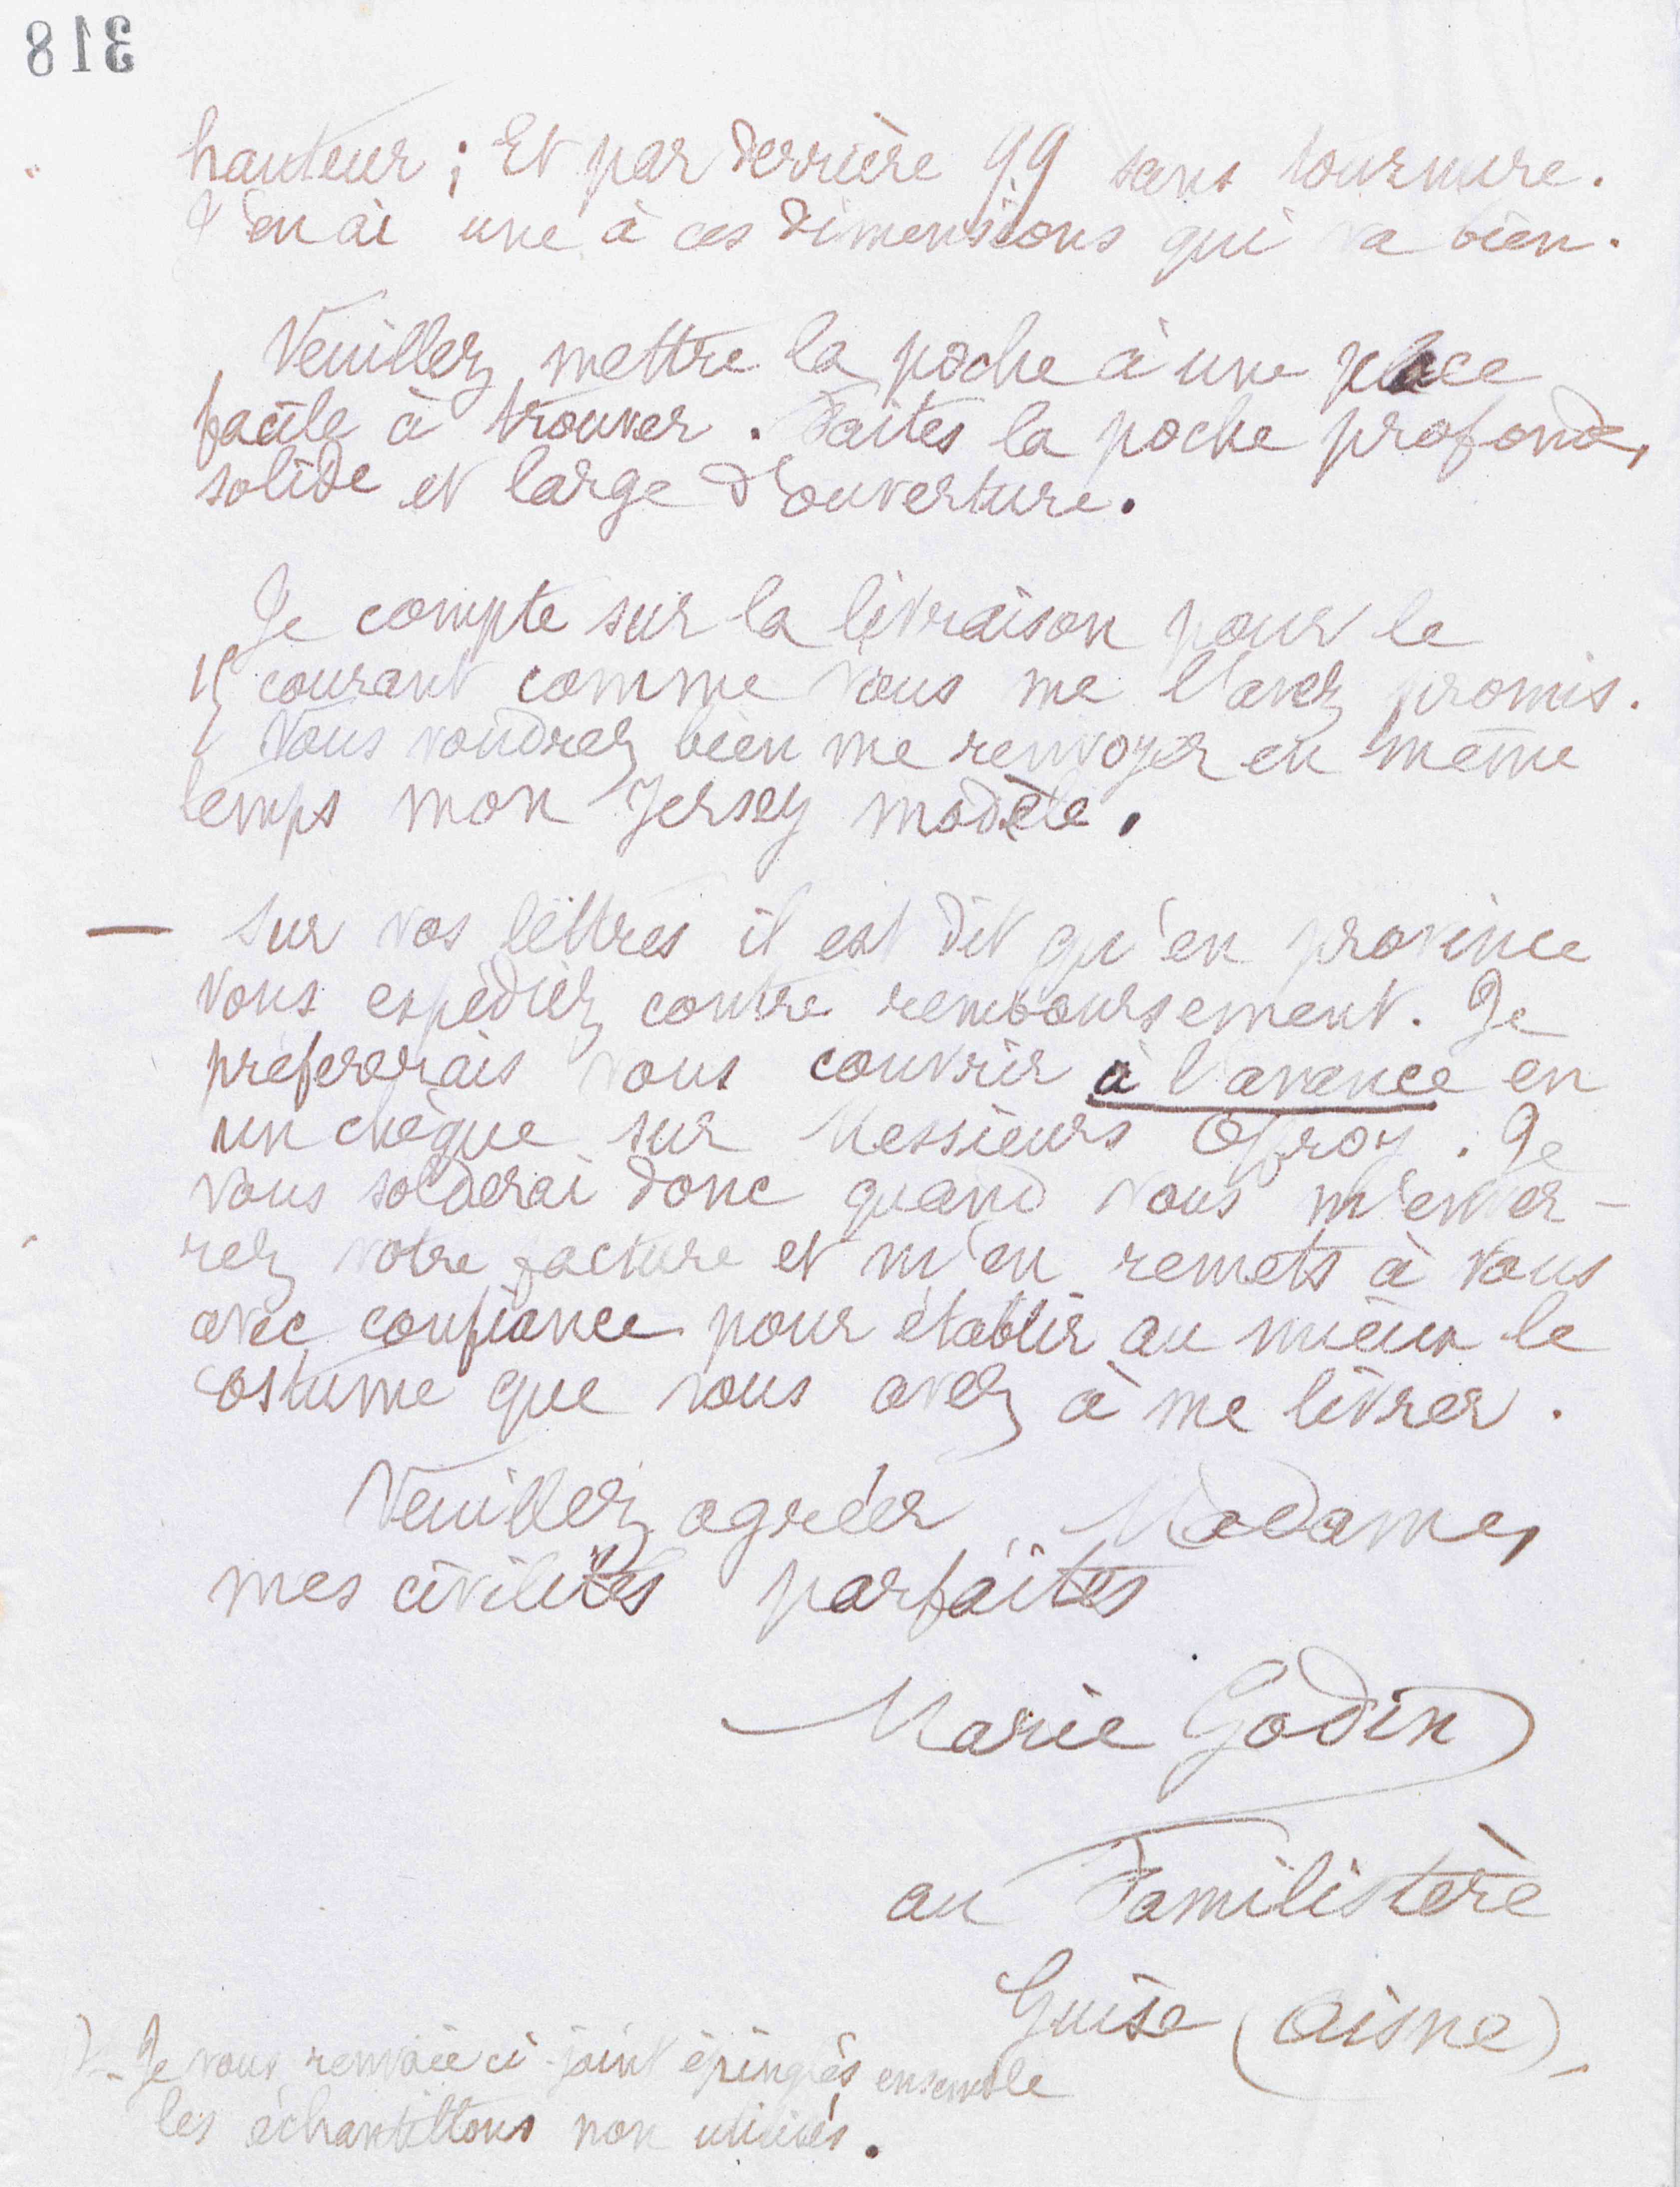 318
hauteur ; Et par derrière 99 sans tournure.
J'en ai une à ces dimensions qui va bien.
Veuillez mettre la poche à une place
facile à trouver. Faites la poche profonde,
solide et large d'ouverture.
Je compte sur la livraison pour le
15 courant comme vous me l'avez promis.
Vous voudrez bien me renvoyer en même
temps mon Jersey modèle.
— Sur vos lettres il est dit qu'en province
vous expédiez contre remboursement. Je
préfererais vous couvrir à l'avance en
un chèque sur Messieurs Offroy. Je
vous solderai donc quand vous m'enver-
rez votre facture et m'en remets à vous
avec confiance pour établir au mieux le
costume que vous avez à me livrer.
Veuillez agréer, Madame,
mes civilités parfaites
Marie Godin
au Familistère
Guise (Aisne)_
Je vous renvoie ci-joint épinglés ensemble
les échantillons non utilisés.